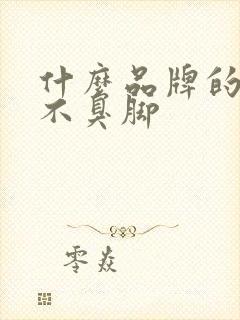 什麼品牌的
不臭脚
零焱